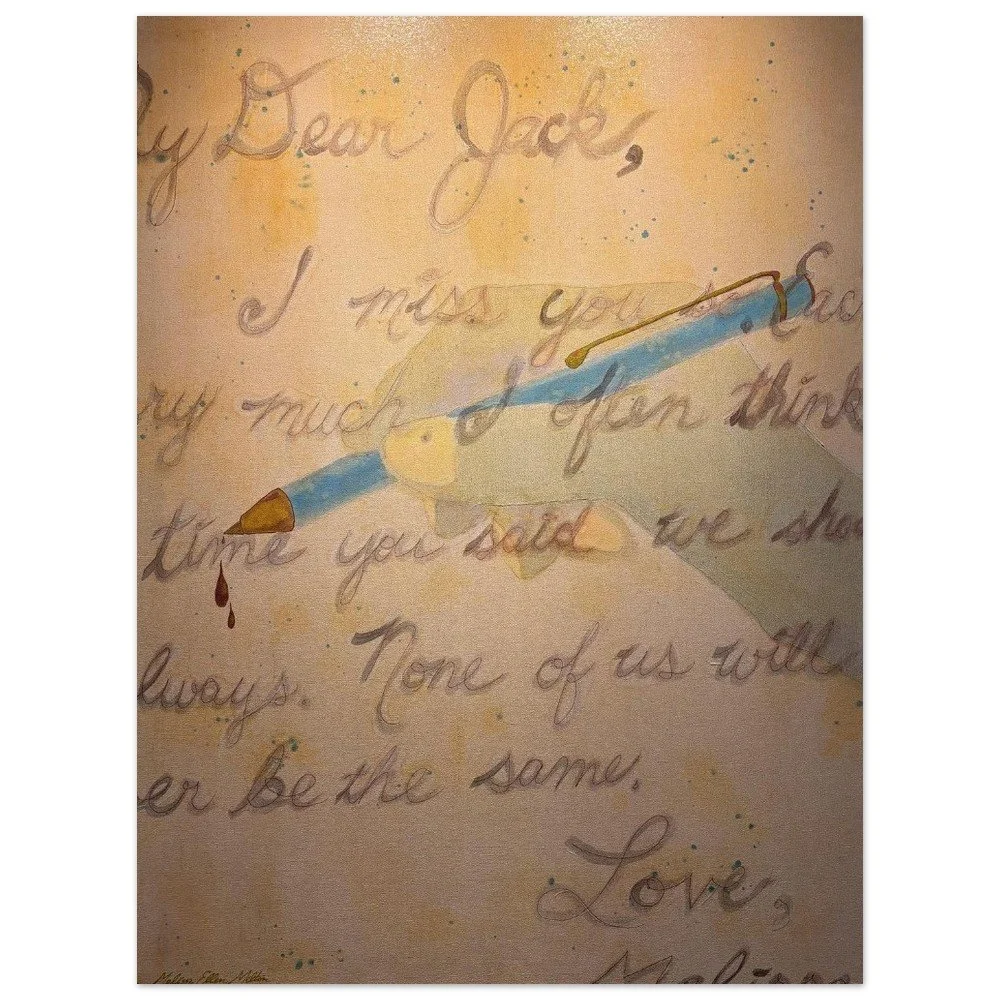 y Dear Jack,
I miss you so.
ry much I often think
time you said we shou
lways. None of us will
er be the same.
Love,